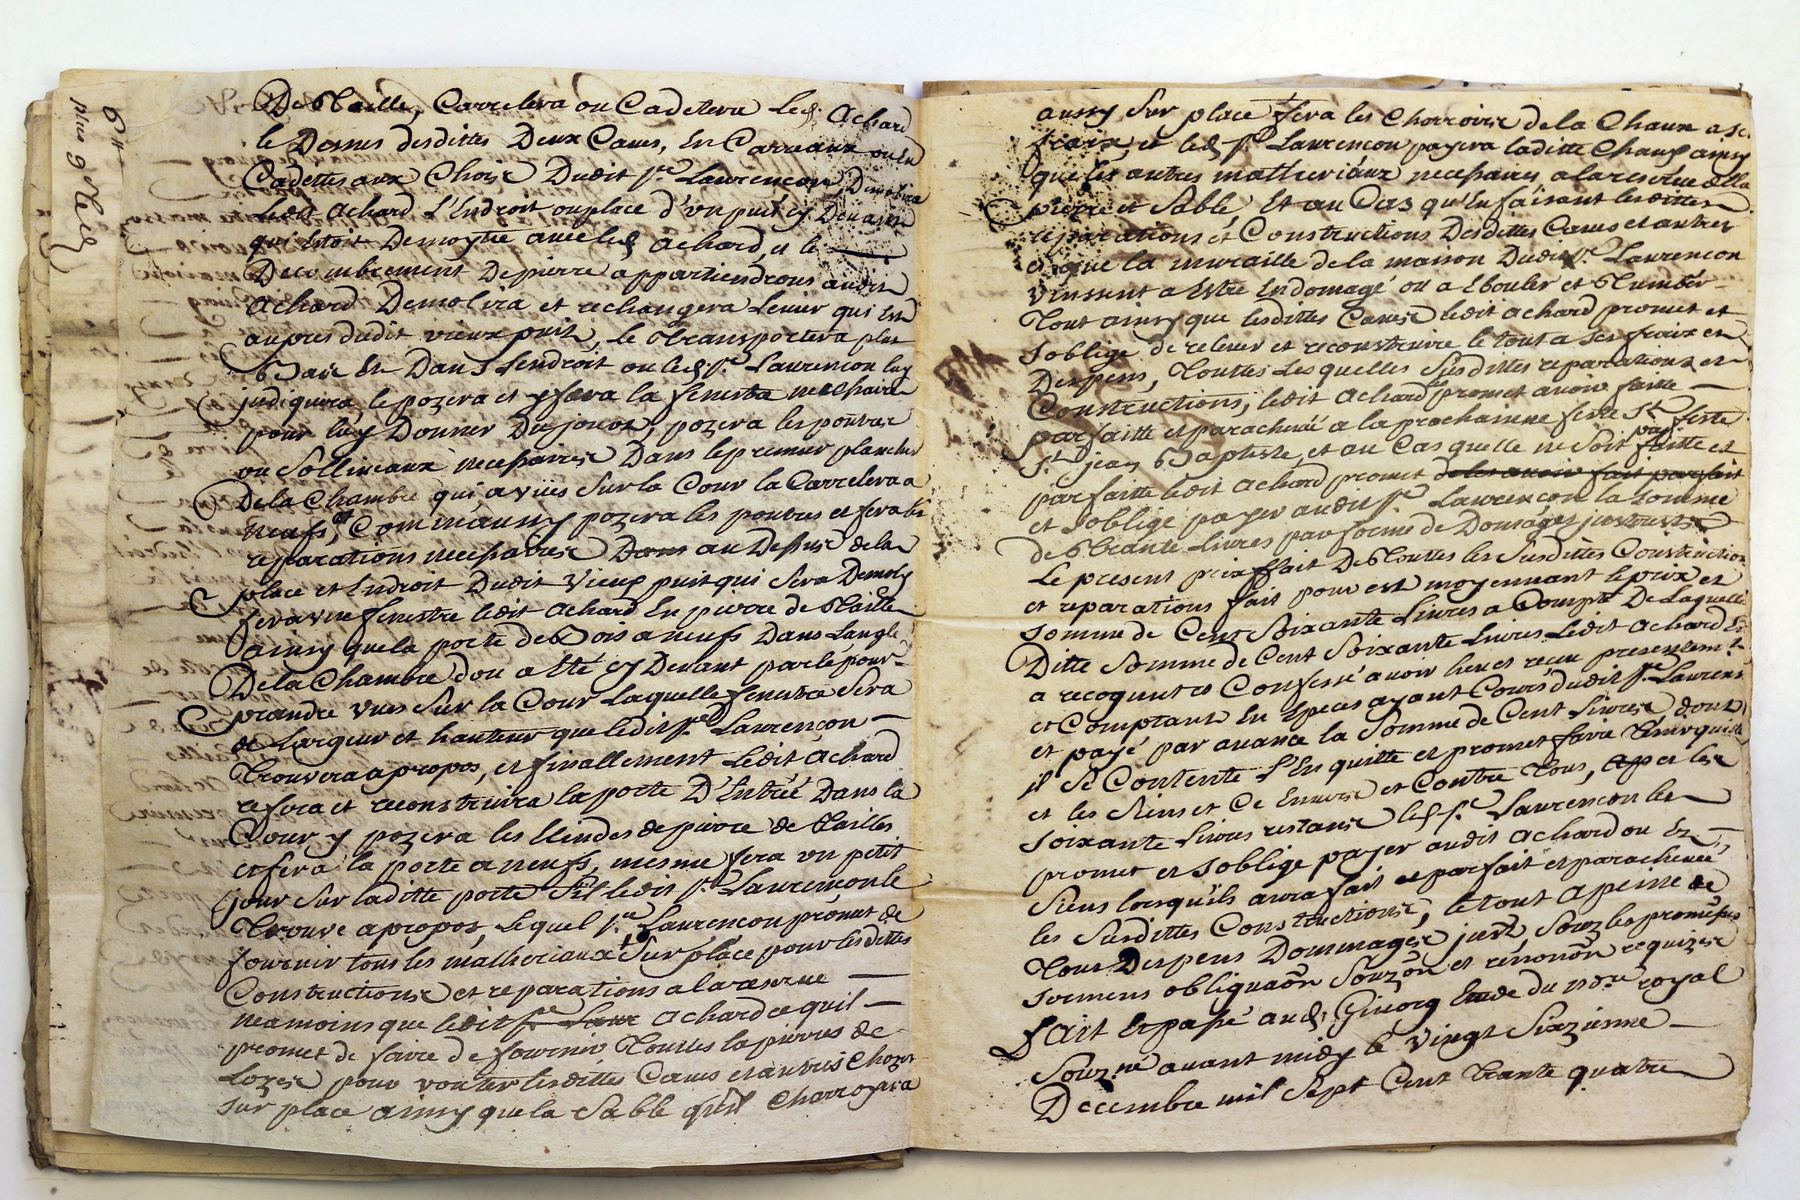 De Taille, Carrelera ou Cadetera led. Achard
le Dessus desdittes Deux Caves, En Carreaux ou En
Cadettes aux Choix Dudit sr. Laurencon, Demolira
Ledit Achard L'Endroit ou place d'un puit cy Devant
qui Estoit Demoytié avec led. Achard, et le
Decombrement De pierre appartiendrons audit
Achard Demolira et rechangera Levier qui Est
aupres dudit vieux puit, le transportera plus
Bas Et Dans Lendroit ou led. sr. Laurencon luy
judiquera, le pozera et y fera la fenestra necessaire
pour luy Donner Du jour, pozera les poutres
ou Sollineaux necessaires Dans le premier plancher
De la Chambre qui a vües sur la Cour la Carrelera a
neufs, et Comm'aussy pozera les poutres et fera les
reparations necessaires Dans au Dessus de la
place et Endroit Dudit Vieux puit qui sera Demoly
fera une fenestre ledit Achard En pierre de Taille
ainsy que la porte de Bois a neufs Dans Langle
De la Chambre dou a Eté cy Devant parlé pour
prandre vues sur la Cour Laquelle fenestra sera
de Largeur et hauteur que ledit sr. Laurencon
Trouvera a propos, et finallement Ledit Achard
refera et reconstruira la porte D'Entréé Dans la
Cour y pozera les Liendes de pierre de Tailles
et fera la porte a neufs, mesme fera un petit
jour sur laditte porte s'il ledit sr. Laurencon le
Trouve a propos, Lequel sr. Laurencon promet de
fournir tous les matheriaux sur place pour lesdittes
Constructions et reparations a la reserve
neamoins que ledit sr. Laur Achard ce quil
promet de faire de fournir Touttes la pierres de
Lozes pour vouter lesdittes Caves et autres Chozes
sur place ainsy que la Sable qu'il Charroyera
aussy sur place fera les Charrois de la Chaux a ses
fraix, et led. sr. Laurencon payera laditte Chaux ainsy
que les autres matheriaux necessaires a la reserve de la
pierre et Sable Et au Cas qu'En faisant lesdittes
reparations et Constructions Desdittes Caves et autres
et que la muraille de la maison Dudit sr. Laurencon
vinssent a Estre Endomagé ou a Ebouler et Tumber
Tout ainsy que lesdittes Caves ledit Achard promet et
s'oblige de relever et reconstruire le tout a ses fraix et
Despens, Touttes Lesquelles Susdittes reparations et
Constructions, ledit Achard promet avoir faitte
parfaitte et parachevée a la prochainne feste St. feste
St. jean Baptiste, et au Cas quelle ne Soit pas faitte et
parfaitte ledit Achard promet de les avoir fait parfait
et s'oblige payer audit sr. Laurencon la somme
de Trante Livres par forme de Domages
Le present prix fait De Touttes les Susdittes Construction
et reparations fait pour est moyennant le prix et
somme de Cent Soixante Livres a Compte De Laquelle
Ditte Somme de Cent Soixante Livres Ledit Achard Et
a recognut et Confessé avoir heu et receu presentement
et Comptant En Especes ayant Cours dudit sr. Laurencon
et payé par avance la Somme de Cent Livres dont
il Se Contente L'En quitte et promet faire Tenir quitte
et les Siens et Ce Envers et Contre Tous, et les
Soixante Livres restans led. sr. Laurencon les
promet et s'oblige payer audit Achard ou Es
Siens lorsqu'ils aura fait et parfait et parachevée
les Susdittes Constructions, le tout a peine de
Tous Despens Dommages, Souz les promesses
sermens obligaõn Souzõn et rénonõn requizes
fait Et passé aud. Giuorg Etude du nore. royal
Souzné. avant midy le vingt Sixzieme
Decembre mil Sept Cent Trante quatre